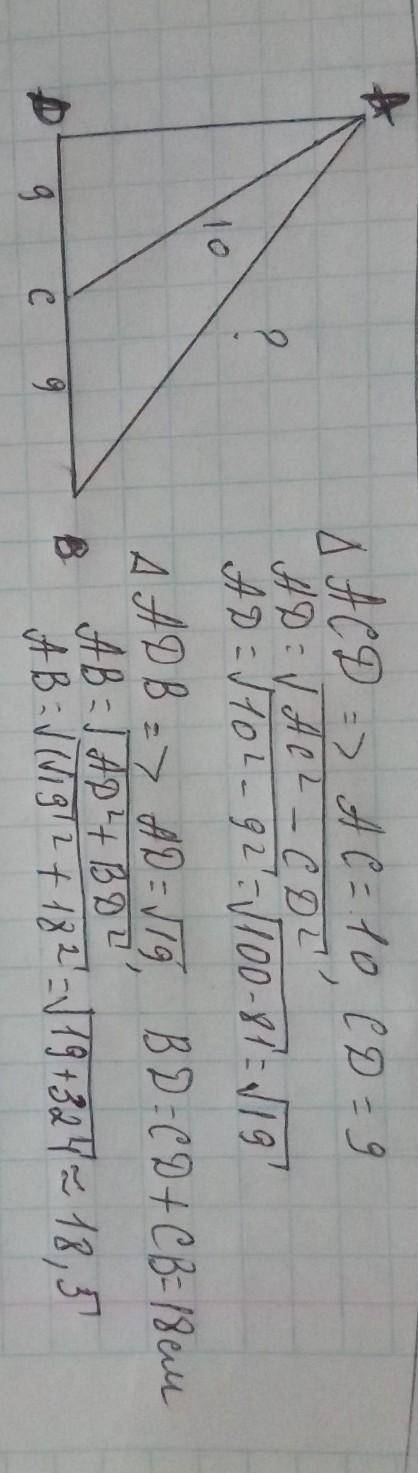 A
10
?
D 9 C 9 B
Δ ACD => AC = 10, CD = 9
AD = √AC² - CD²,
AD = √10² - 9² = √100-81 = √19
Δ ADB => AD = √19, BD = CD + CB = 18 см
AB = √AD² + BD²,
AB = √(√19)² + 18² = √19+324 ≈ 18,5